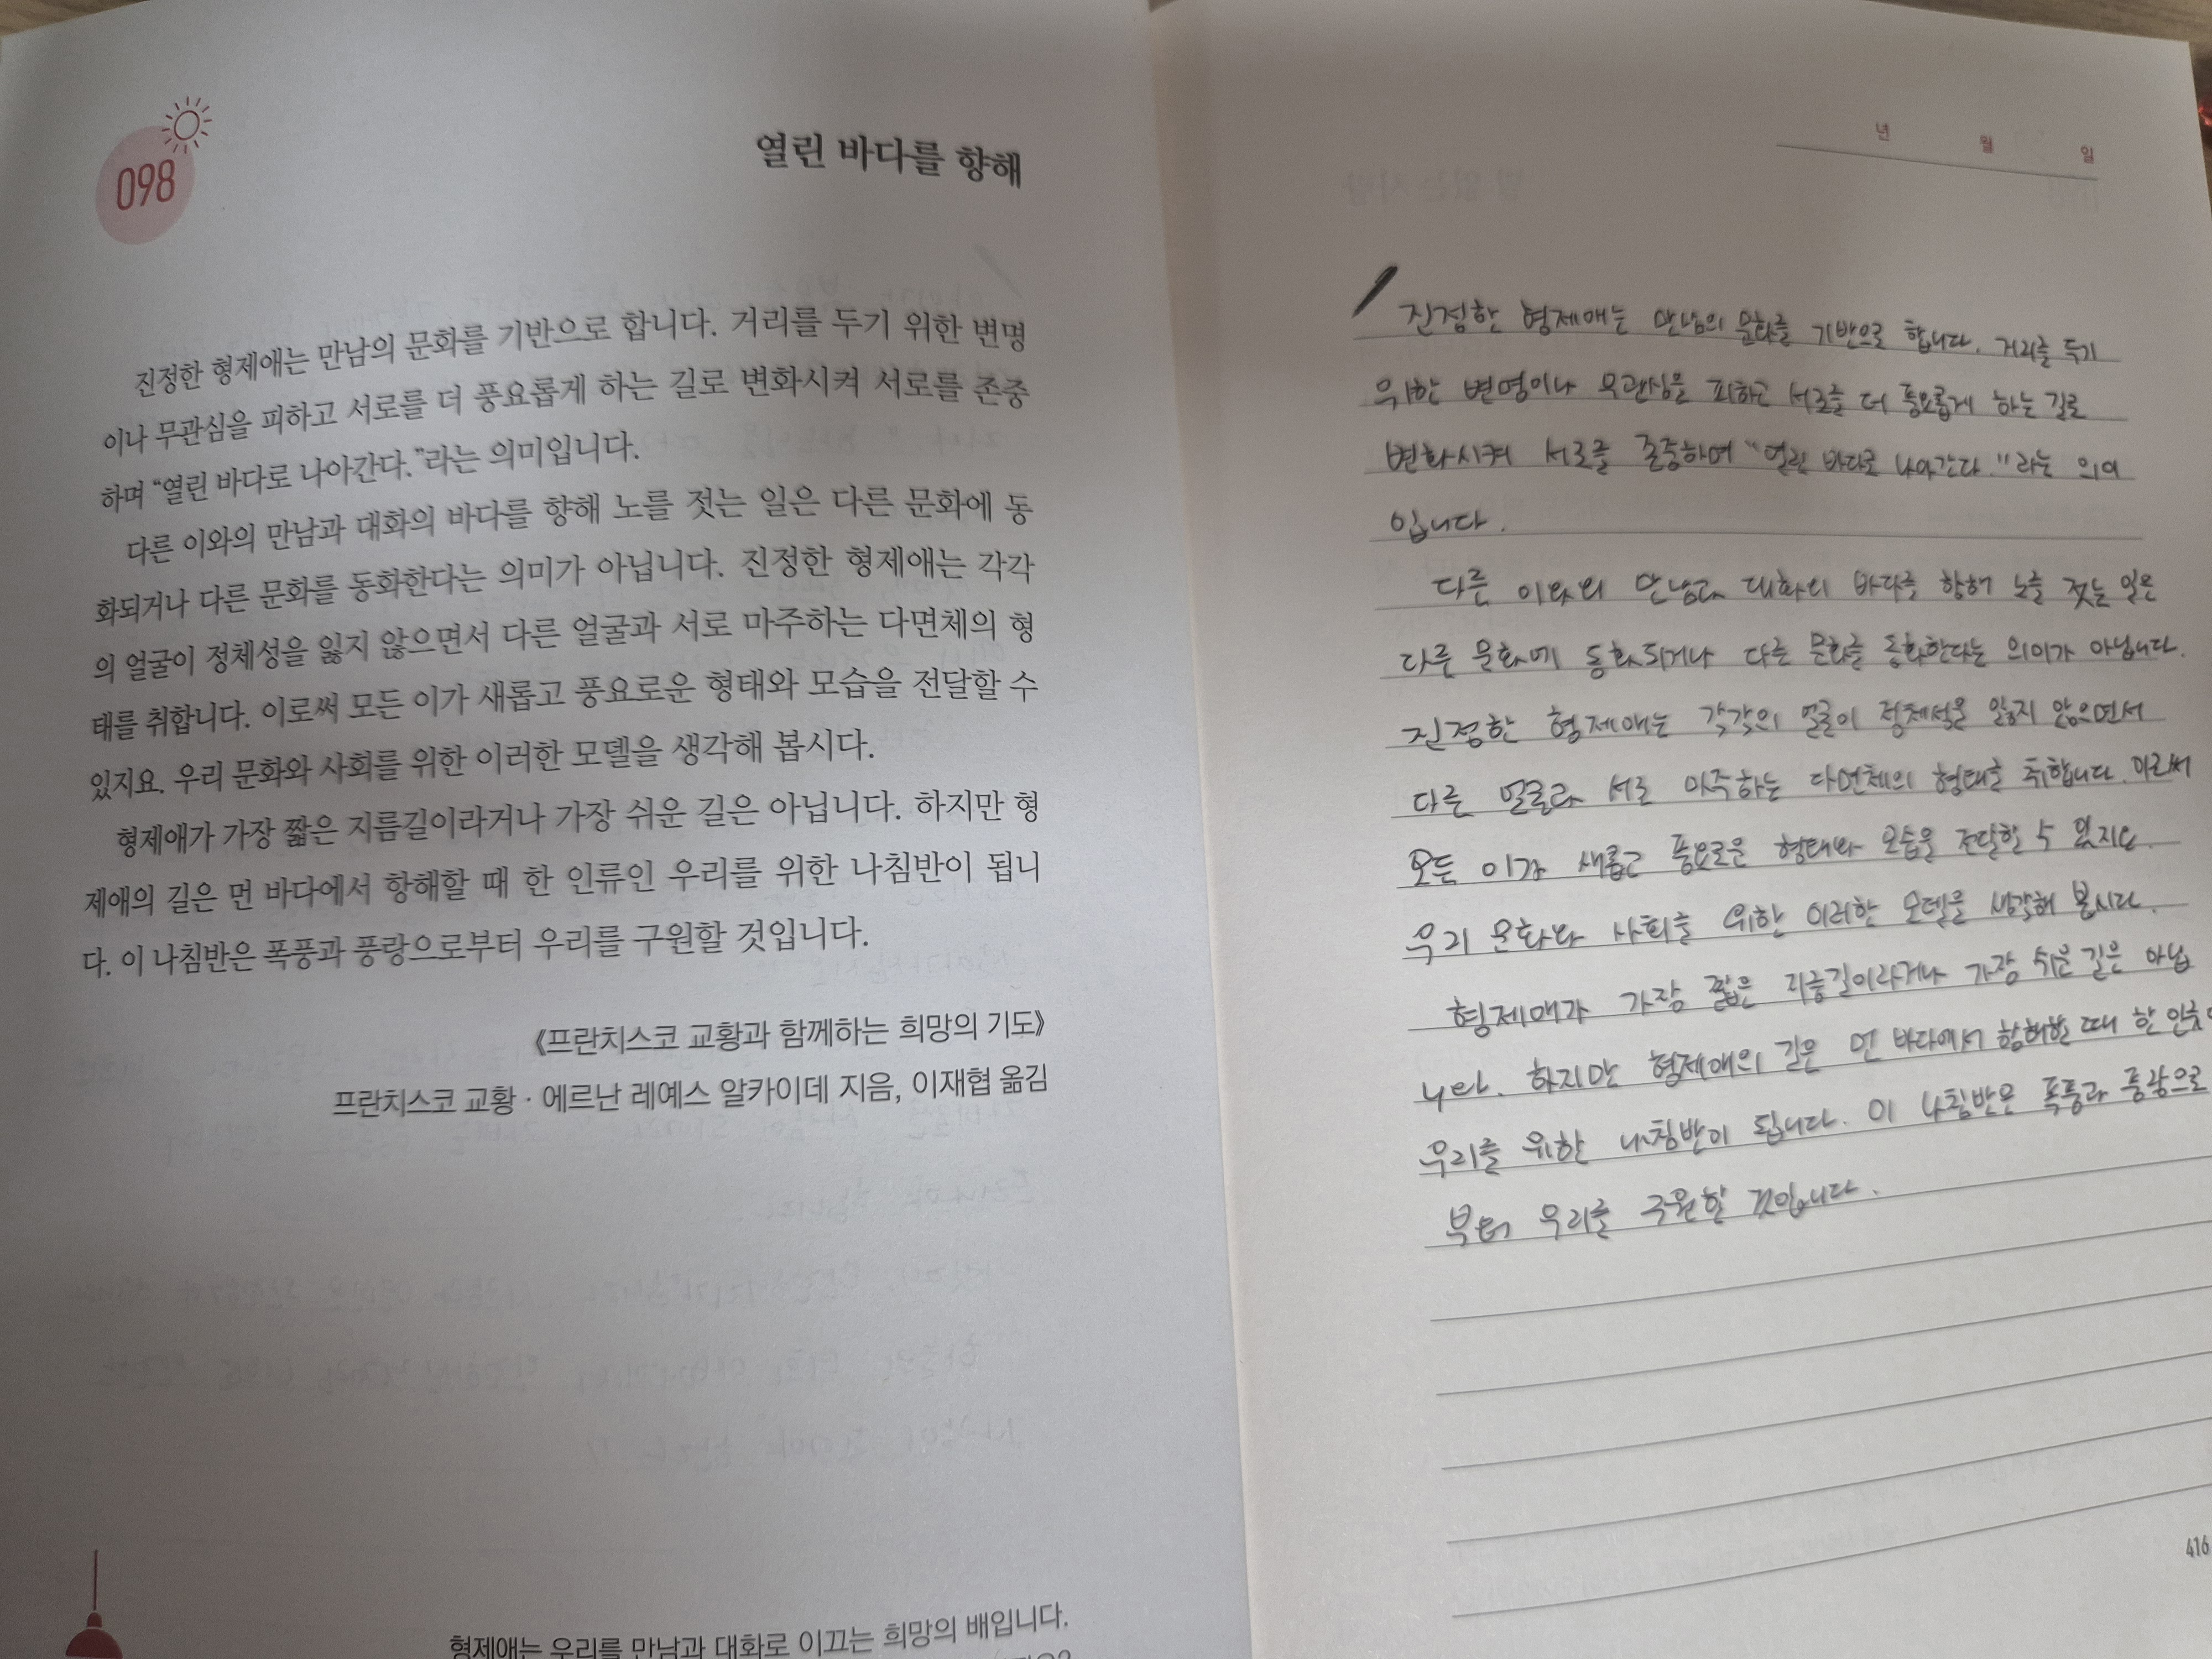 098
열린 바다를 향해
진정한 형제애는 만남의 문화를 기반으로 합니다. 거리를 두기 위한 변명
이나 무관심을 피하고 서로를 더 풍요롭게 하는 길로 변화시켜 서로를 존중
하며 “열린 바다로 나아간다.”라는 의미입니다.
다른 이와의 만남과 대화의 바다를 향해 노를 젓는 일은 다른 문화에 동
화되거나 다른 문화를 동화한다는 의미가 아닙니다. 진정한 형제애는 각각
의 얼굴이 정체성을 잃지 않으면서 다른 얼굴과 서로 마주하는 다면체의 형
태를 취합니다. 이로써 모든 이가 새롭고 풍요로운 형태와 모습을 전달할 수
있지요. 우리 문화와 사회를 위한 이러한 모델을 생각해 봅시다.
형제애가 가장 짧은 지름길이라거나 가장 쉬운 길은 아닙니다. 하지만 형
제애의 길은 먼 바다에서 항해할 때 한 인류인 우리를 위한 나침반이 됩니
다. 이 나침반은 폭풍과 풍랑으로부터 우리를 구원할 것입니다.
《프란치스코 교황과 함께하는 희망의 기도》
프란치스코 교황 · 에르난 레예스 알카이데 지음, 이재협 옮김
형제애는 우리를 만남과 대화로 이끄는 희망의 배입니다.
년 월 일
진정한 형제애는 만남의 문화를 기반으로 합니다. 거리를 두기
위한 변명이나 무관심을 피하고 서로를 더 풍요롭게 하는 길로
변화시켜 서로를 존중하며 “열린 바다로 나아간다.”라는 의미
입니다.
다른 이와의 만남과 대화의 바다를 향해 노를 젓는 일은
다른 문화에 동화되거나 다른 문화를 동화한다는 의미가 아닙니다.
진정한 형제애는 각각의 얼굴이 정체성을 잃지 않으면서
다른 얼굴과 서로 마주하는 다면체의 형태를 취합니다. 이로써
모든 이가 새롭고 풍요로운 형태와 모습을 전달할 수 있지요.
우리 문화와 사회를 위한 이러한 모델을 생각해 봅시다.
형제애가 가장 짧은 지름길이라거나 가장 쉬운 길은 아닙
니다. 하지만 형제애의 길은 먼 바다에서 항해할 때 한 인류
우리를 위한 나침반이 됩니다. 이 나침반은 폭풍과 풍랑으로
부터 우리를 구원할 것입니다.
416